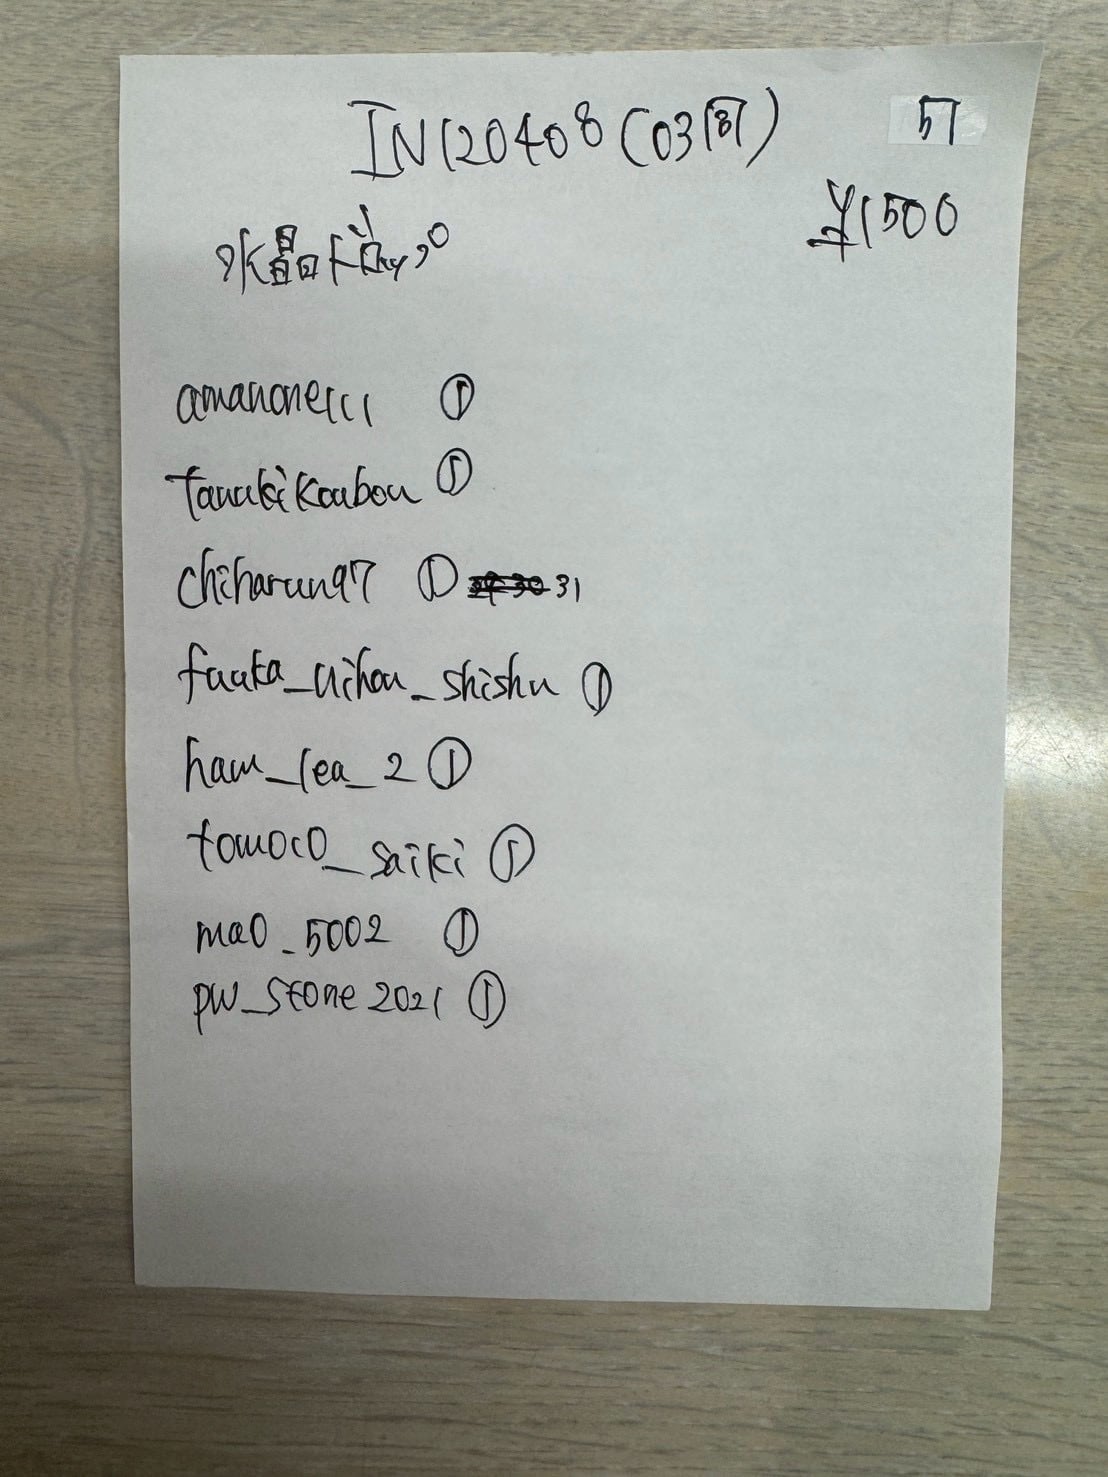 IN120408 (03留) 57
¥1500
水晶ドロップ
amanone111 ①
tanukikoubou ①
chiharun97 ① 31
fuuka_uihou_shishu ①
ham_lea_2 ①
tomoco_saiki ①
mao_5002 ①
pw_stone2021 ①